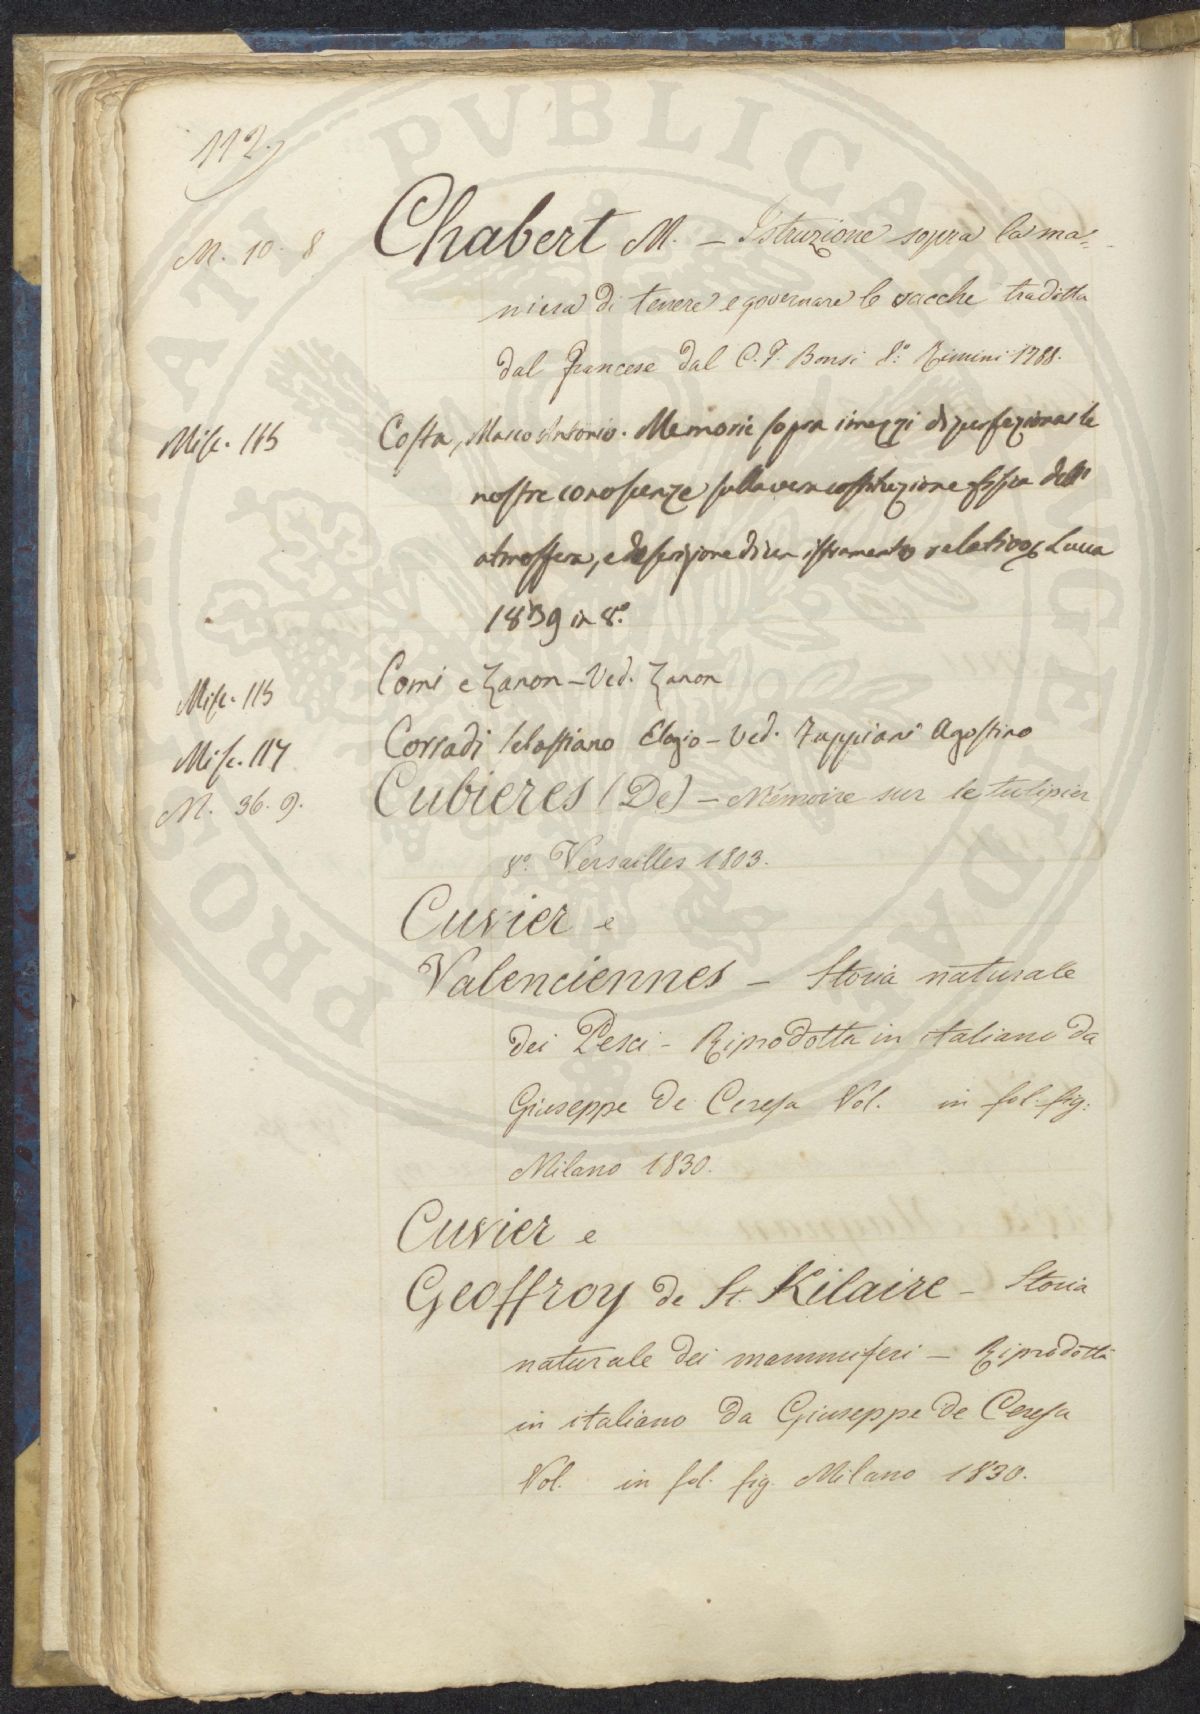 112.
M. 10. 8 Chabert M. – Istruzione sopra la ma=
niera di tenere e governare le vacche tradotta
dal francese dal C. F. Bonsi 8.° Rimini 1788.
Misc. 115 Costa, Marco Antonio. Memorie sopra i mezzi di perfezionar le
nostre conoscenze sulla vera costituzione fisica dell'
atmosfera, e descrizione di un istramento relativo, Lucca
1839 in 8.°
Misc. 115 Comi e Zanon – Ved. Zanon
Misc. 117 Corradi Sebastiano Elogio – Ved. Fappiani Agostino
M. 36. 9. Cubieres (De) – Mémoire sur le tulipier
8.° Versailles 1803.
Cuvier e
Valenciennes – Storia naturale
dei Pesci – Riprodotta in italiano da
Giuseppe De Ceresa Vol. in fol. fig.
Milano 1830.
Cuvier e
Geoffroy de St. Kilaire – Storia
naturale dei mammiferi – Riprodotta
in italiano da Giuseppe de Ceresa
Vol. in fol. fig. Milano 1830.
PROSPERITATI PVBLICAE AVGENDAE